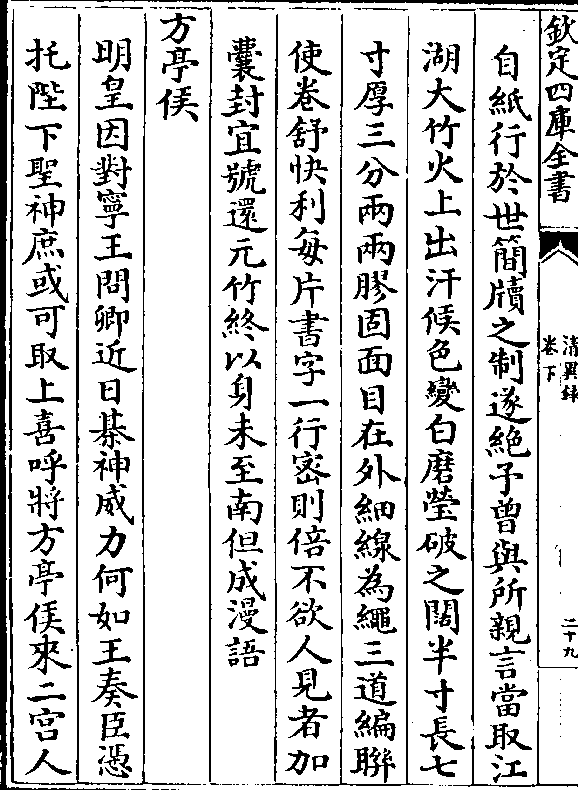 欽定四庫全書
清異錄
卷下
二十九
自紙行於世簡牘之制遂絶予曽與所親言當取江
湖大竹火上出汗候色變白磨瑩破之闊半寸長七
寸厚三分兩兩膠固面目在外細線為繩三道編聨
使卷舒快利每片書字一行密則倍不欲人見者加
囊封宜號還元竹終以身未至南但成漫語
方亭侯
明皇因對寧王問卿近日棊神威力何如王奏臣憑
托陛下聖神庶或可取上喜呼將方亭侯來二宫人